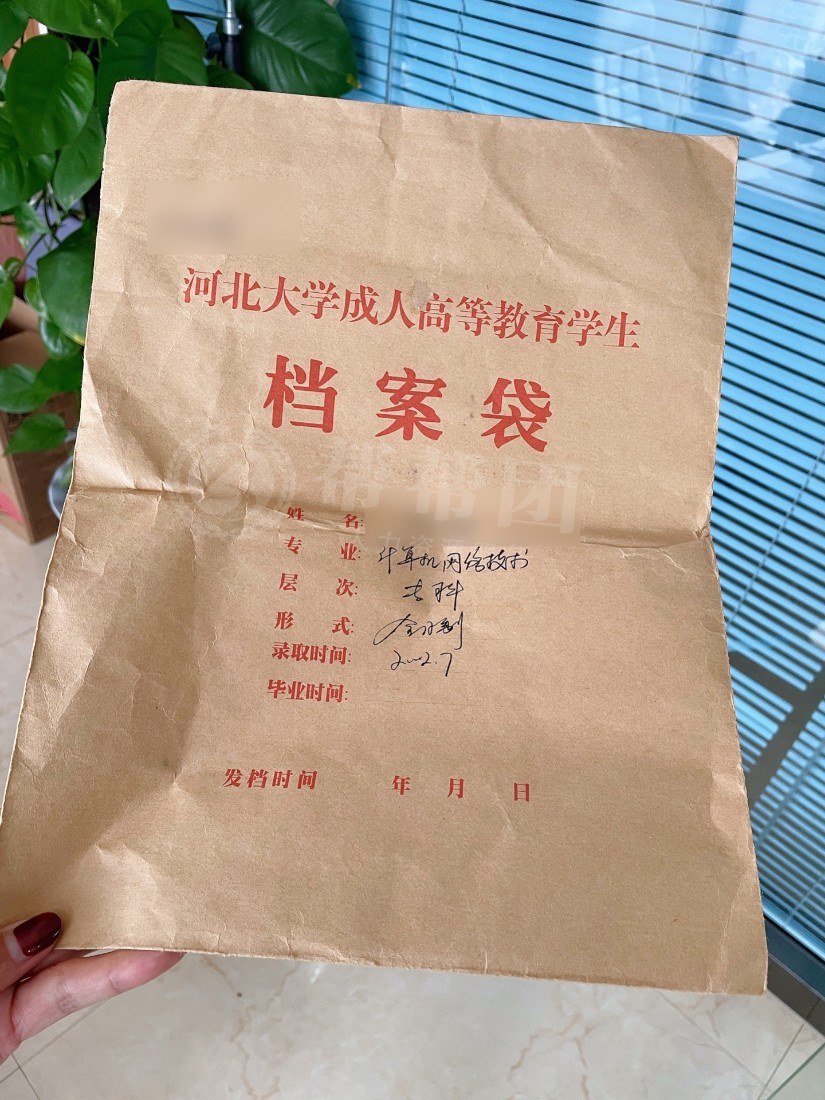 河北大学成人高等教育学生
档案袋
帮帮团
姓名:
专业: 计算机网络技术
层次: 专科
形式: 全日制
录取时间: 2002.7
毕业时间:
发档时间 年 月 日